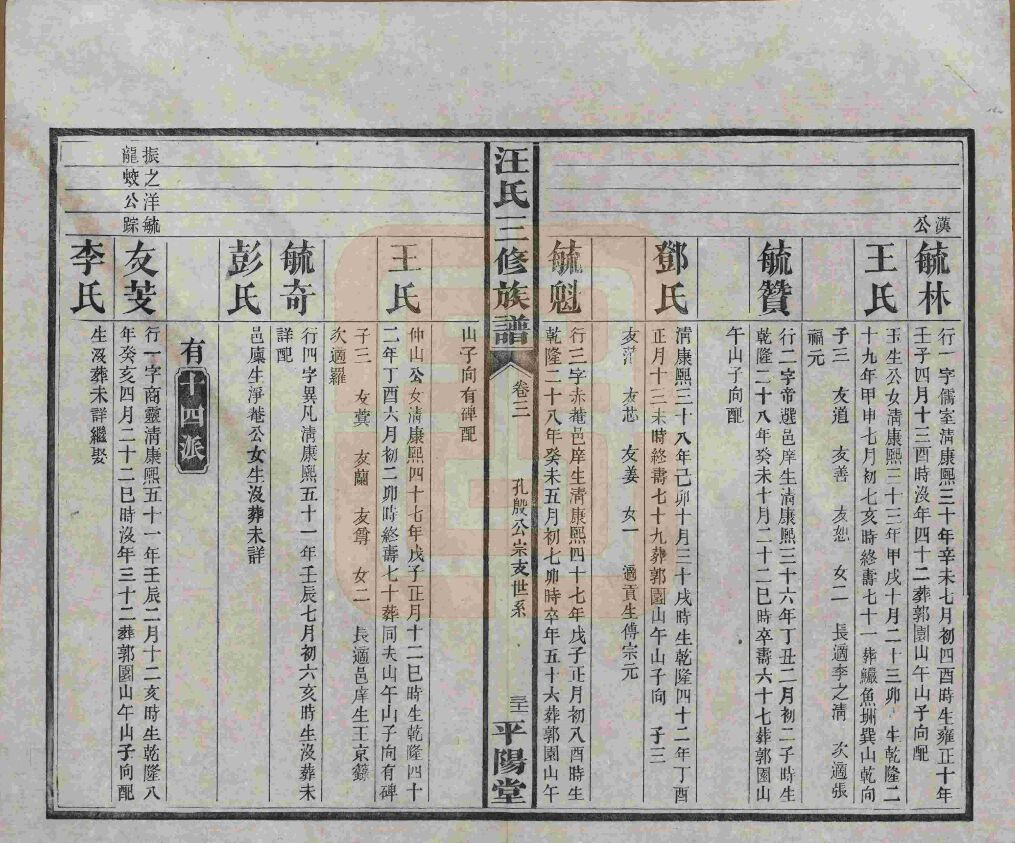 漢公
毓林
行一字儒室清康熙三十年辛未七月初四酉時生雍正十年
壬子四月十三酉時沒年四十二葬郭園山午山子向配
王氏
玉生公女清康熙三十三年甲戌十月二十三卯時生乾隆二
十九年甲申七月初七亥時終壽七十一葬鱖魚洲巽山乾向
子三 友道 友善 友恕 女二 長適李之清 次適張
福元
毓贊
行二字帝選邑庠生清康熙三十六年丁丑二月初二子時生
乾隆二十八年癸未十月二十二巳時卒壽六十七葬郭園山
午山子向配
鄧氏
清康熙三十八年己卯十月三十戌時生乾隆四十二年丁酉
正月十三未時終壽七十九葬郭園山午山子向 子三
友 友芯 友姜 女一 適貢生傅宗元
毓魁
行三字赤菴邑庠生清康熙四十七年戊子正月初八酉時生
乾隆二十八年癸未五月初七卯時卒年五十六葬郭園山午
汪氏三修族譜
卷三
孔殷公崇支世系
三十
平陽堂
山子向有碑配
王氏
仲山公女清康熙四十七年戊子正月十二巳時生乾隆四十
二年丁酉六月初二卯時終壽七十葬同夫山午山子向有碑
子三 友蓂 友蘭 友尊 女二 長適邑庠生王京籙
次適羅
毓奇
行四字異凡清康熙五十一年壬辰七月初六亥時生沒葬未
詳配
彭氏
邑廩生淨菴公女生沒葬未詳
有十四派
振之洋毓
龍蛟公踪
友芰
行一字商靈清康熙五十一年壬辰二月十二亥時生乾隆八
年癸亥四月二十二巳時沒年三十二葬郭園山午山子向配
李氏
生沒葬未詳繼娶